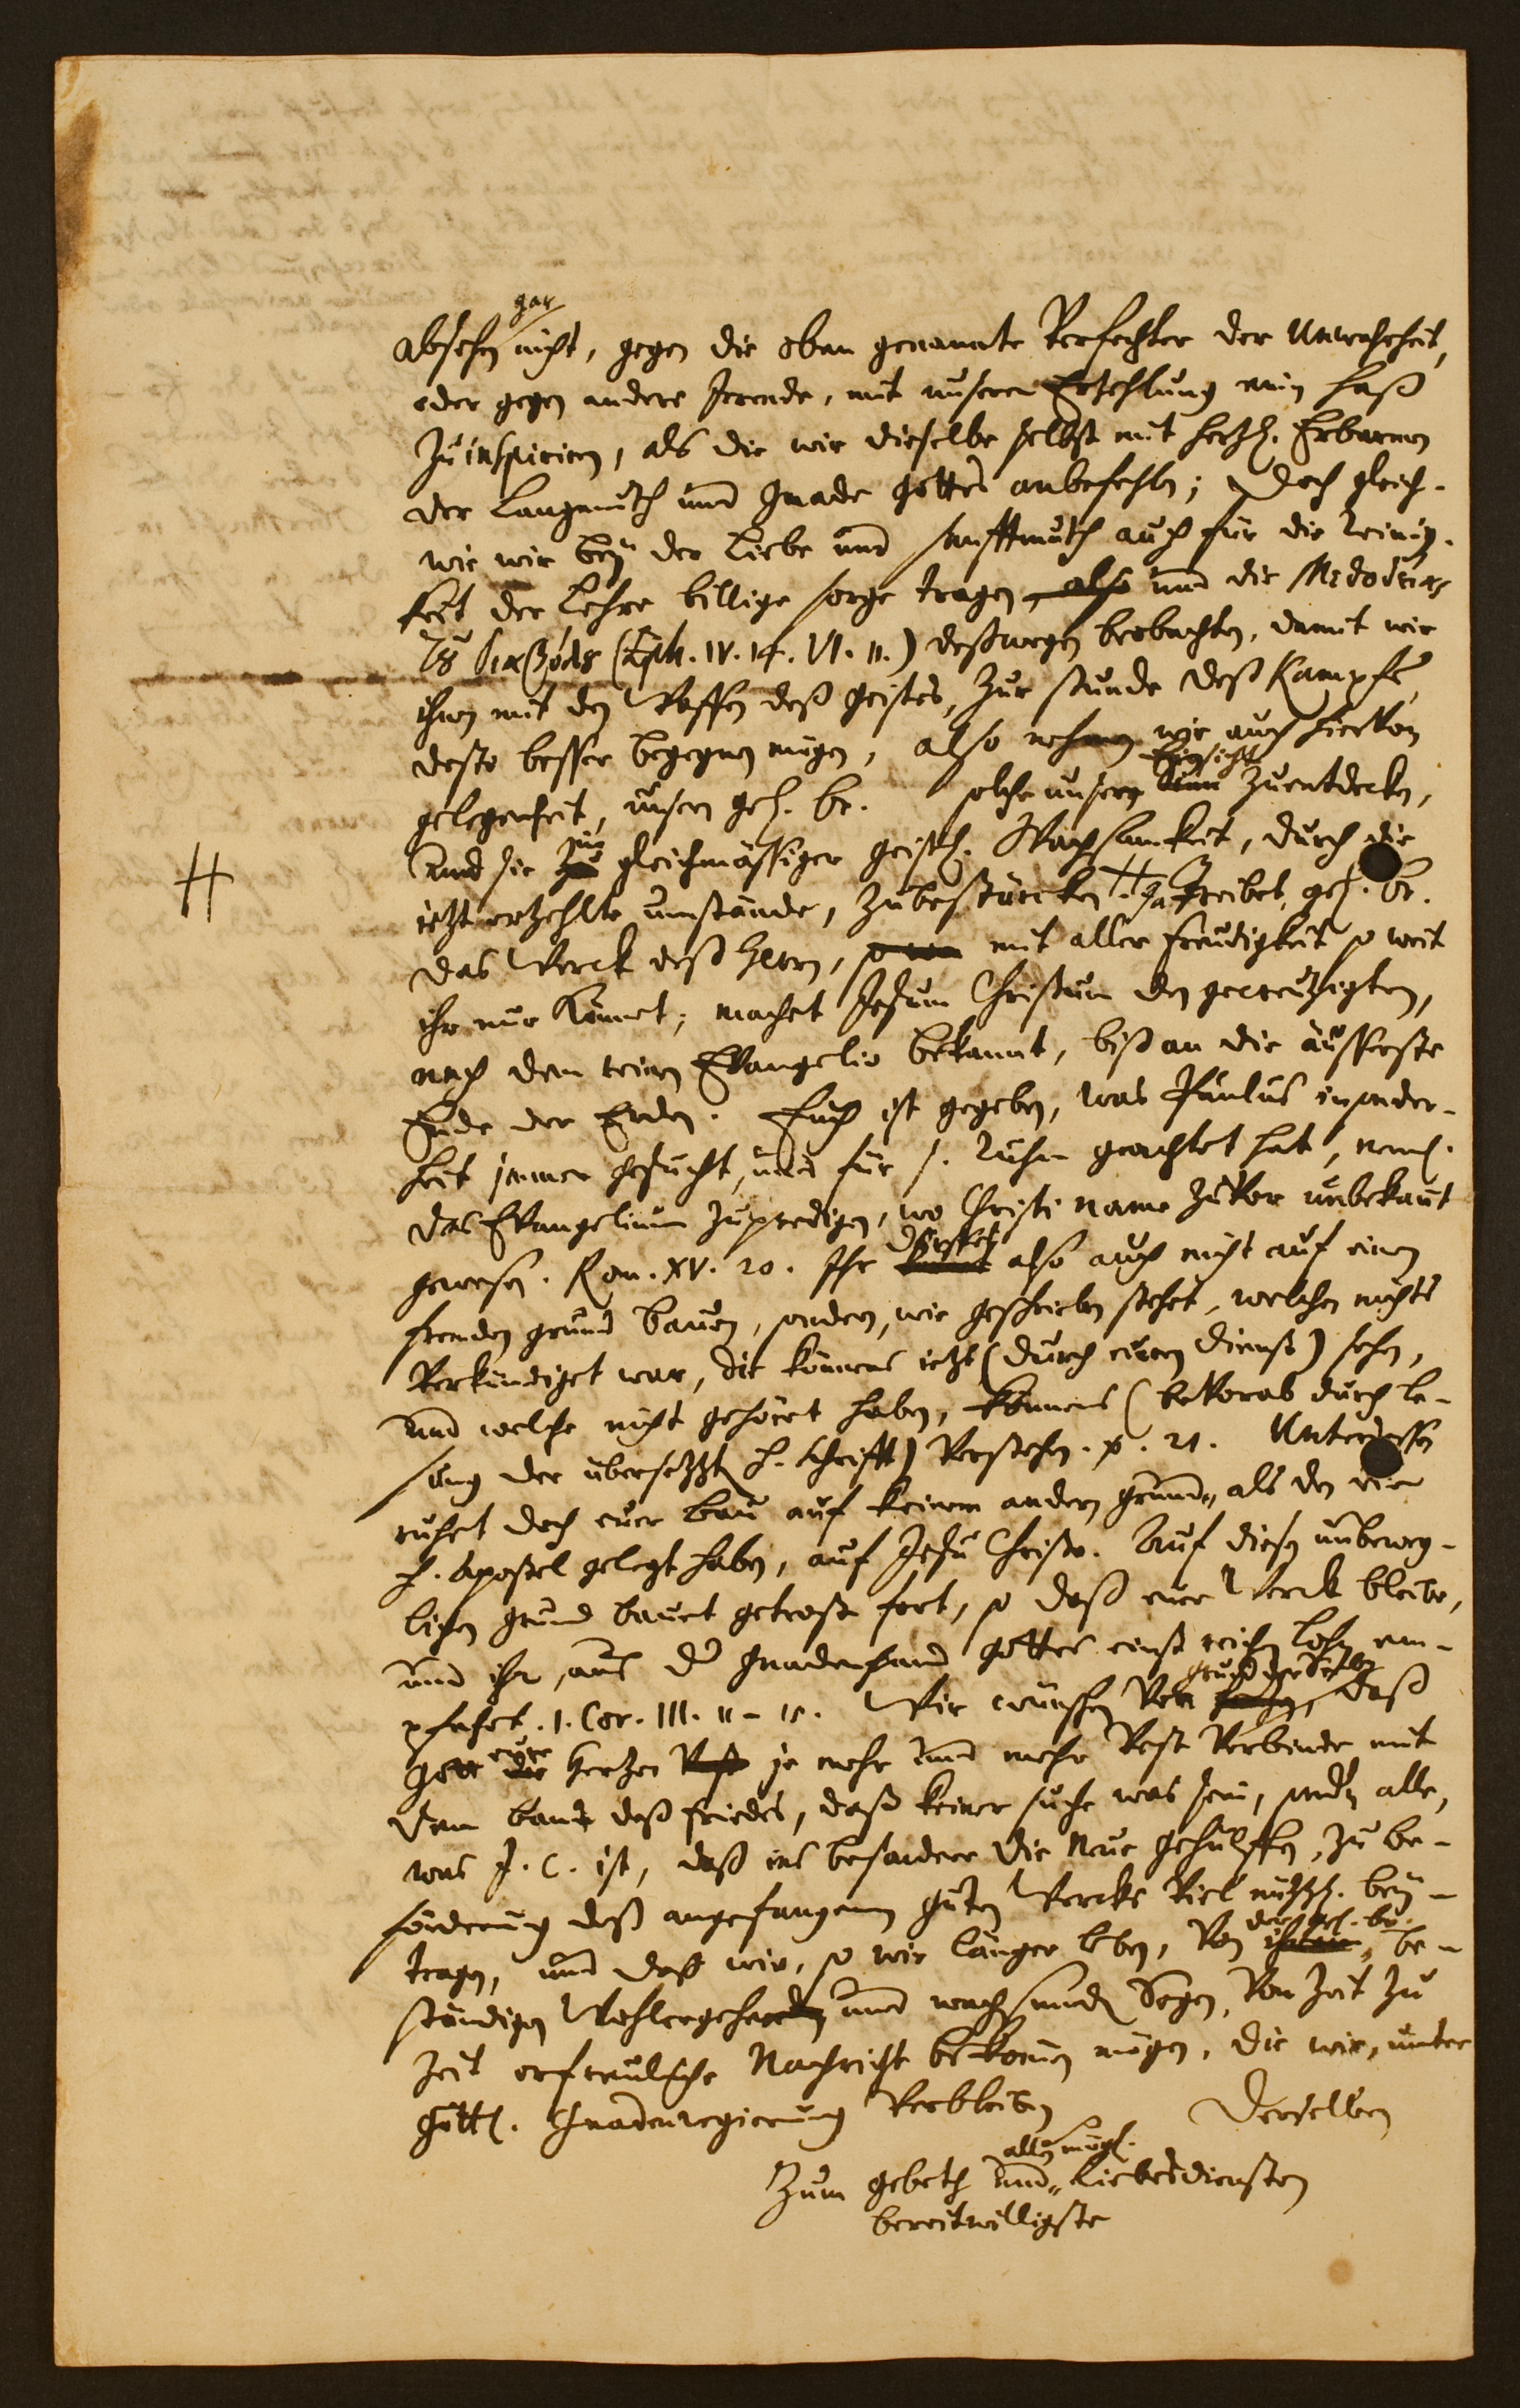 gar
absehen nicht, gegen die oben genannte Verfechter der Unwahrheit,
oder gegen andere Irrende, mit unserer Ertzehlung einen Haß
zu inspiriren, als die wir dieselbe selbst mit hertzl. Erbarmen
der Langmuth und Gnade Gottes anbefehlen; Doch gleich-
wie wir bey der Liebe und sanfftmuth auch für die Reinig-
keit der Lehre billige sorge tragen, also und die Μεθοδείας
τȣ διαβόλȣ (Eph. IV. 14. VI. 11.) deßwegen beobachten, damit wir
ihnen mit den Waffen deß Geistes, zur stunde deß Kampfs,
desto besser begegnen mögen, also nehmen wir auch hiervon
gelegenheit, unsern gel. br. solche unsere Einsicht zuentdecken,
und sie zur gleichmässiger geistl. Wachsamkeit, durch die
H
ietzt ertzehlte umstände, zubestärcken. H Ja treibet, gel. br.
das Werck deß Herrn, so mit aller freudigkeit so weit
ihr nur könnet; machet Jesum Christum den gecreutzigten,
nach dem reinen Evangelio bekannt, biß an die äusserste
Ende der Erden. Euch ist gegeben, was Paulus insonder-
heit immer gesucht, und für s. Ruhm geachtet hat, neml.
das Evangelium zupredigen, wo Christi name zuvor unbekant
gewesen. Rom. XV. 20. Ihr dörffet also auch nicht auf einen
fremden grund bauen, sondern, wie geschrieben stehet, welchen nichts
Verkündiget war, die könnens ietzt (durch euren Dienst) sehen,
und welche nicht gehöret haben, könnens (bevorab durch le-
sung der übersetzt H. Schrifft) Verstehen. v. 21. Unterdessen
ruhet doch euer bau auf keinem andern grund, als den die
H. Apostel gelegt haben, auf Jesu Christo. Auf diesen unbeweg-
lichen grund bauet getrost fort, so daß euer Werck bleibe,
und ihr, aus der Gnadenhand Gottes einst reichen Lohn em-
pfahet. 1. Cor. III. 11 - 15. Wir wünschen Von grund der Seelen, daß
Gott eure Hertzen je mehr und mehr Vest Verbinde mit
dem band deß friedes, daß keiner suche was sein, sondern alle,
was J. C. ist, daß ins besondere die Neue gehülffen, zu be-
förderung deß angefangenen guten Wercks Viel nützl. bey-
tragen, und daß wir, so wir länger leben, Von der gel. br. be-
ständigen Wohlergehen und wachsenden Segen, Von Zeit zu
Zeit erfreuliche Nachricht bekommen mögen, die wir, unter
Göttl. Gnadenregierung Verbleiben Derselben
zum gebeth und allen mögl. Liebesdiensten
bereitwilligste